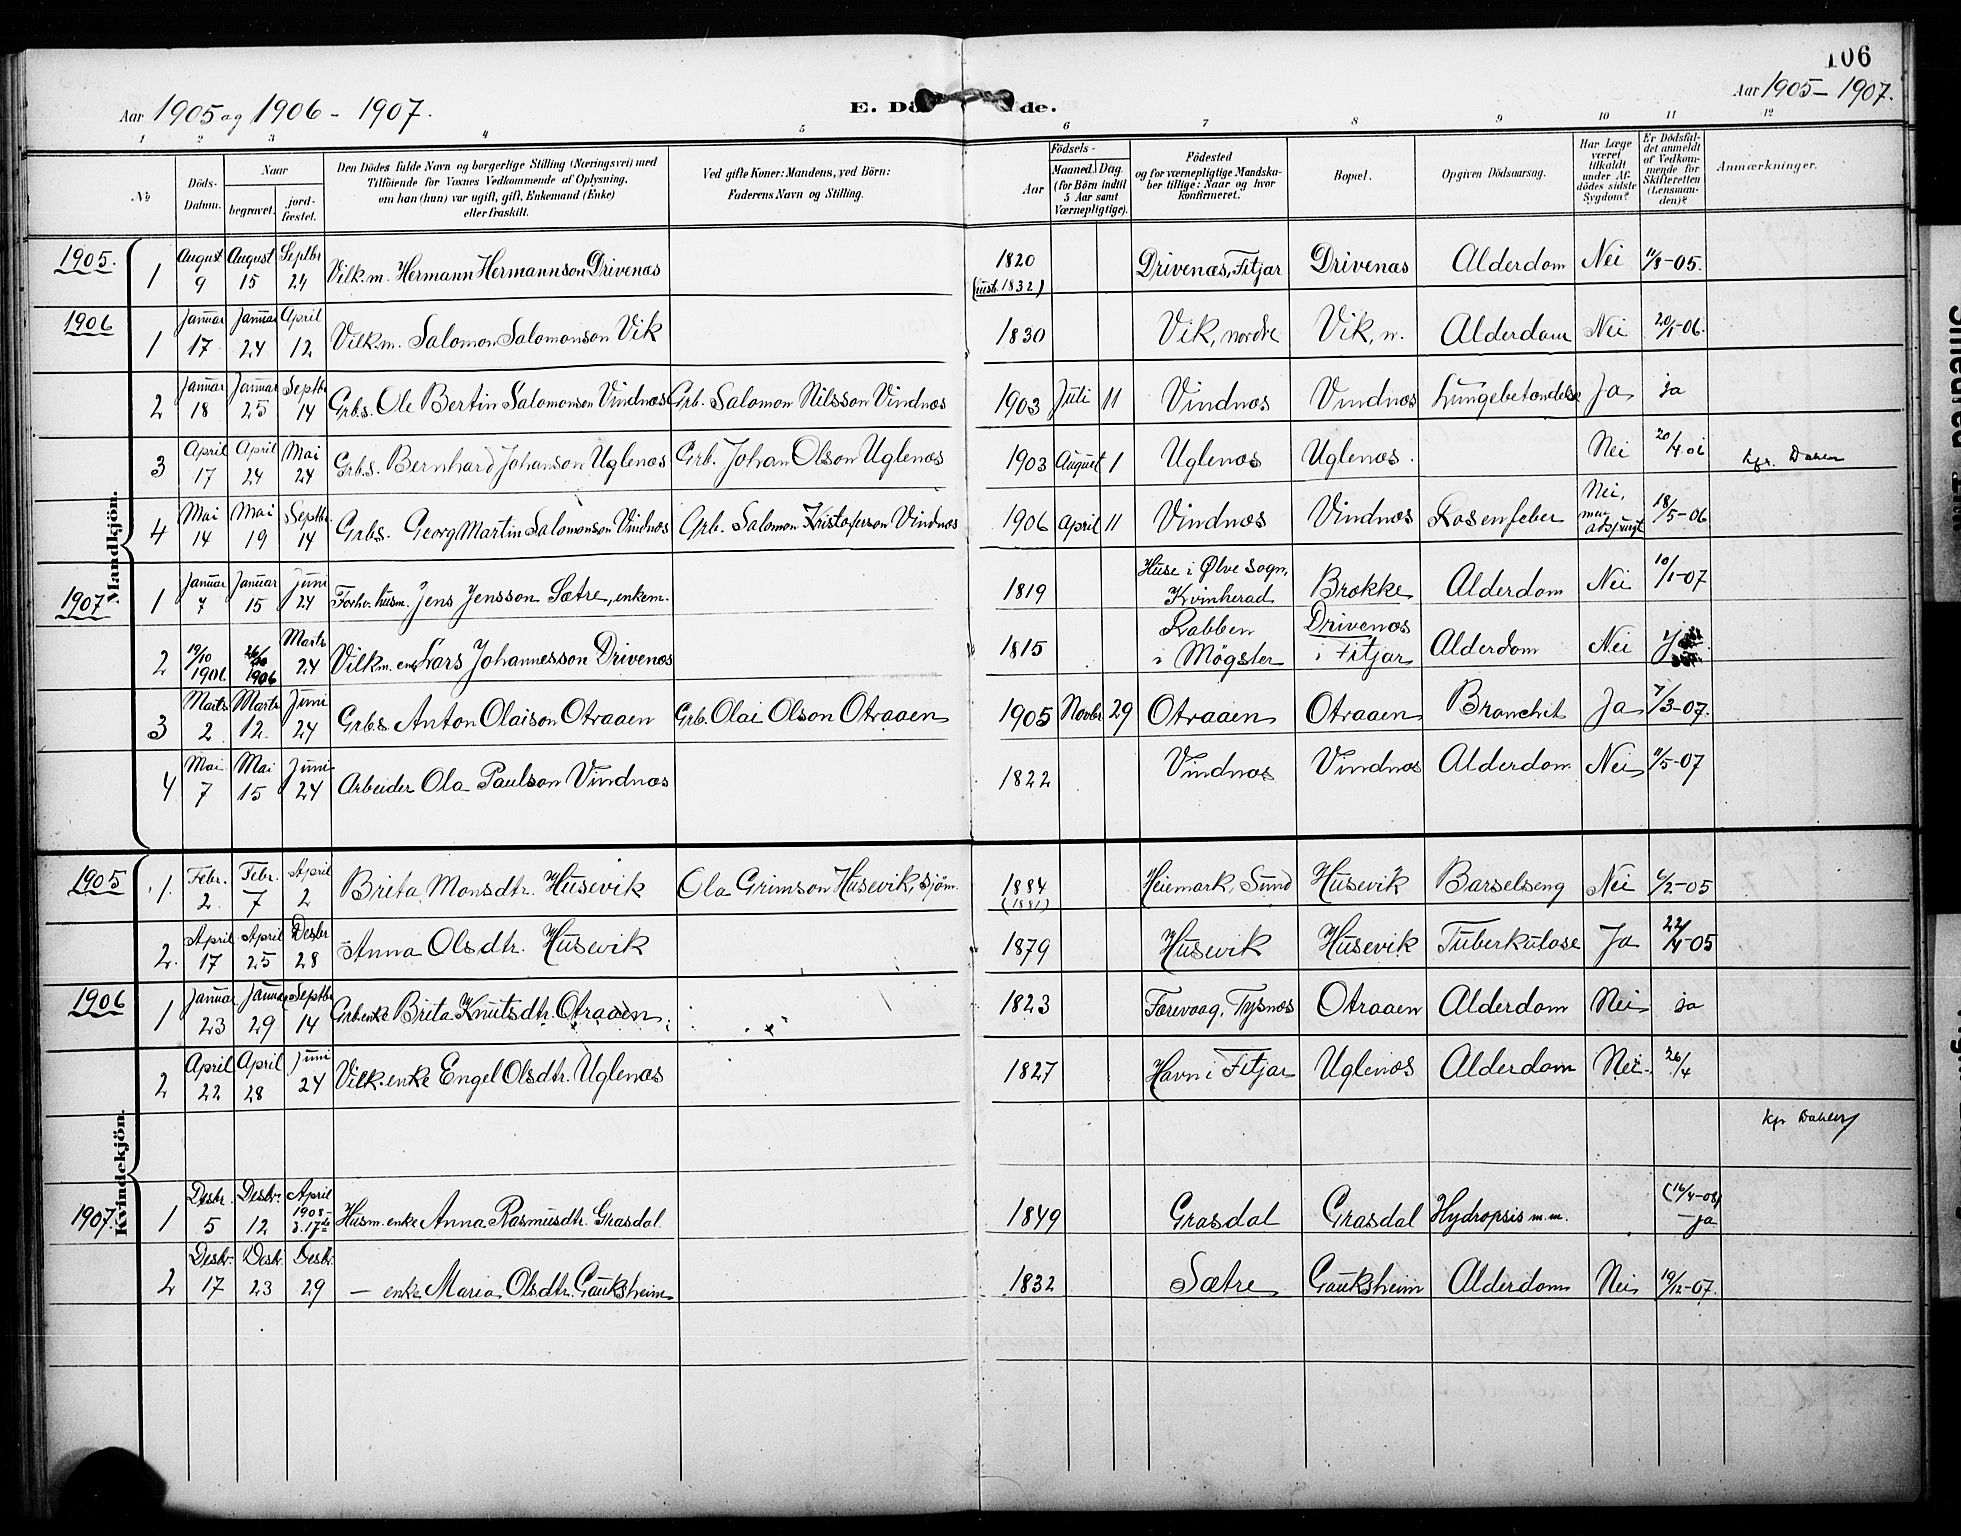 106
Aar 1905 og 1906 - 1907.
E. Dö de.
Aar 1905 - 1907.
1 2 3 4 5 6 7 8 9 10 11 12
No. Döds-Datum. Naar begravet. jord-fæstet. Den Dödes fulde Navn og borgerlige Stilling (Næringsvei) med Tilföiende for Voxnes Vedkommende af Oplysning, om han (hun) var ugift, gift, Enkemand (Enke) eller fraskilt. Ved gifte Koner: Mandens, ved Börn: Faderens Navn og Stilling. Födsels- Aar Maaned. Dag. (for Börn indtil 5 Aar samt Værnepligtige). Födested og for værnepligtige Mandskaber tillige: Naar og hvor konfirmeret. Bopæl. Opgiven Dödsaarsag. Har Læge været tilkaldt under Afdödes sidste Sygdom? Er Dödsfaldet anmeldt af Vedkommende for Skifteretten (Lensmanden)? Anmærkninger.
Mandkjön.
1905. 1 August 9 August 15 Septbr 24 Vilk.m. Hermann Hermannson Drivenæs 1820 (inst. 1832) Drivenæs, Fitjar Drivenæs Alderdom Nei 11/8-05.
1906 1 Januar 17 Januar 24 April 12 Vilk.m. Salomon Salomonson Vik 1830 Vik, nordre Vik, n. Alderdom Nei 20/1-06.
2 Januar 18 Januar 25 Septbr 14 Grb.s. Ole Bertin Salomonson Vindnæs Grb. Salomon Nilsson Vindnæs 1903 Juli 11 Vindnæs Vindnæs Lungebetændelse Ja ja
3 April 17 April 24 Mai 24 Grb.s. Bernhard Johanson Uglenæs Grb. Johan Olson Uglenæs 1903 August 1 Uglenæs Uglenæs. Nei 20/4 06 kgr. Dahler
4 Mai 14 Mai 19 Septbr 14 Grb.s. Georg Martin Salomonson Vindnæs Grb. Salomon Kristoferson Vindnæs 1906 April 11 Vindnæs Vindnæs Rosenfeber Nei, men adspurgt 18/5-06
1907 1 Januar 7 Januar 15 Juni 24 Forhv. husm. Jens Jensson Sætre, enkem. 1819 Huse i Ølve sogn, Kvinherad Brokke Alderdom Nei 10/1-07
2 19/10 1906 26/10 1906 Marts 24 Vilkm. enk. Lars Johannesson Drivenæs 1815 Rabben i Møgster Drivenæs i Fitjar Alderdom Nei
3 Marts 2 Marts 12. Juni 24 Grb.s Anton Olaison Otraaen Grb. Olai Olson Otraaen 1905 Novbr 29 Otraaen Otraaen Bronchit Ja 7/3-07.
4 Mai 7 Mai 15 Juni 24 Arbeider Ola Paulson Vindnæs 1822 Vindnæs Vindnæs Alderdom Nei 11/5-07
Kvindekjön.
1905 1. Febr. 2 Febr. 7 April 2 Brita Monsdtr. Husevik Ola Grimson Husevik, sjöm. 1884 (1881) Heiemark, Sund Husevik Barselseng Nei 6/2-05
2. April 17 April 25 Desbr 28 Anna Olsdtr. Husevik 1879 Husevik Husevik Tuberkulose Ja 22/4-05
1906 1 Januar 23 Januar 29 Septbr 14 Grb.enke Brita Knutsdtr. Otraaen 1823 Færevaag, Tysnæs Otraaen Alderdom Nei ja
2 April 22 April 28 Juni 24 Vilk.enke Engel Olsdtr. Uglenæs 1827 Havn i Fitjar Uglenæs Alderdom Nei 26/4
kgr Dahler
1907. 1 Desbr. 5 Desbr. 12 April 1908 d. 17de Husm.enke Anna Rasmusdtr. Grasdal 1849 Grasdal Grasdal Hydropsis m.m. (16/4-08) - ja
2 Desbr. 17 Desbr. 23 Desbr. 29 - enke Maria Olsdtr. Gauksheim 1832 Sætre Gauksheim Alderdom Nei 19/12-07.